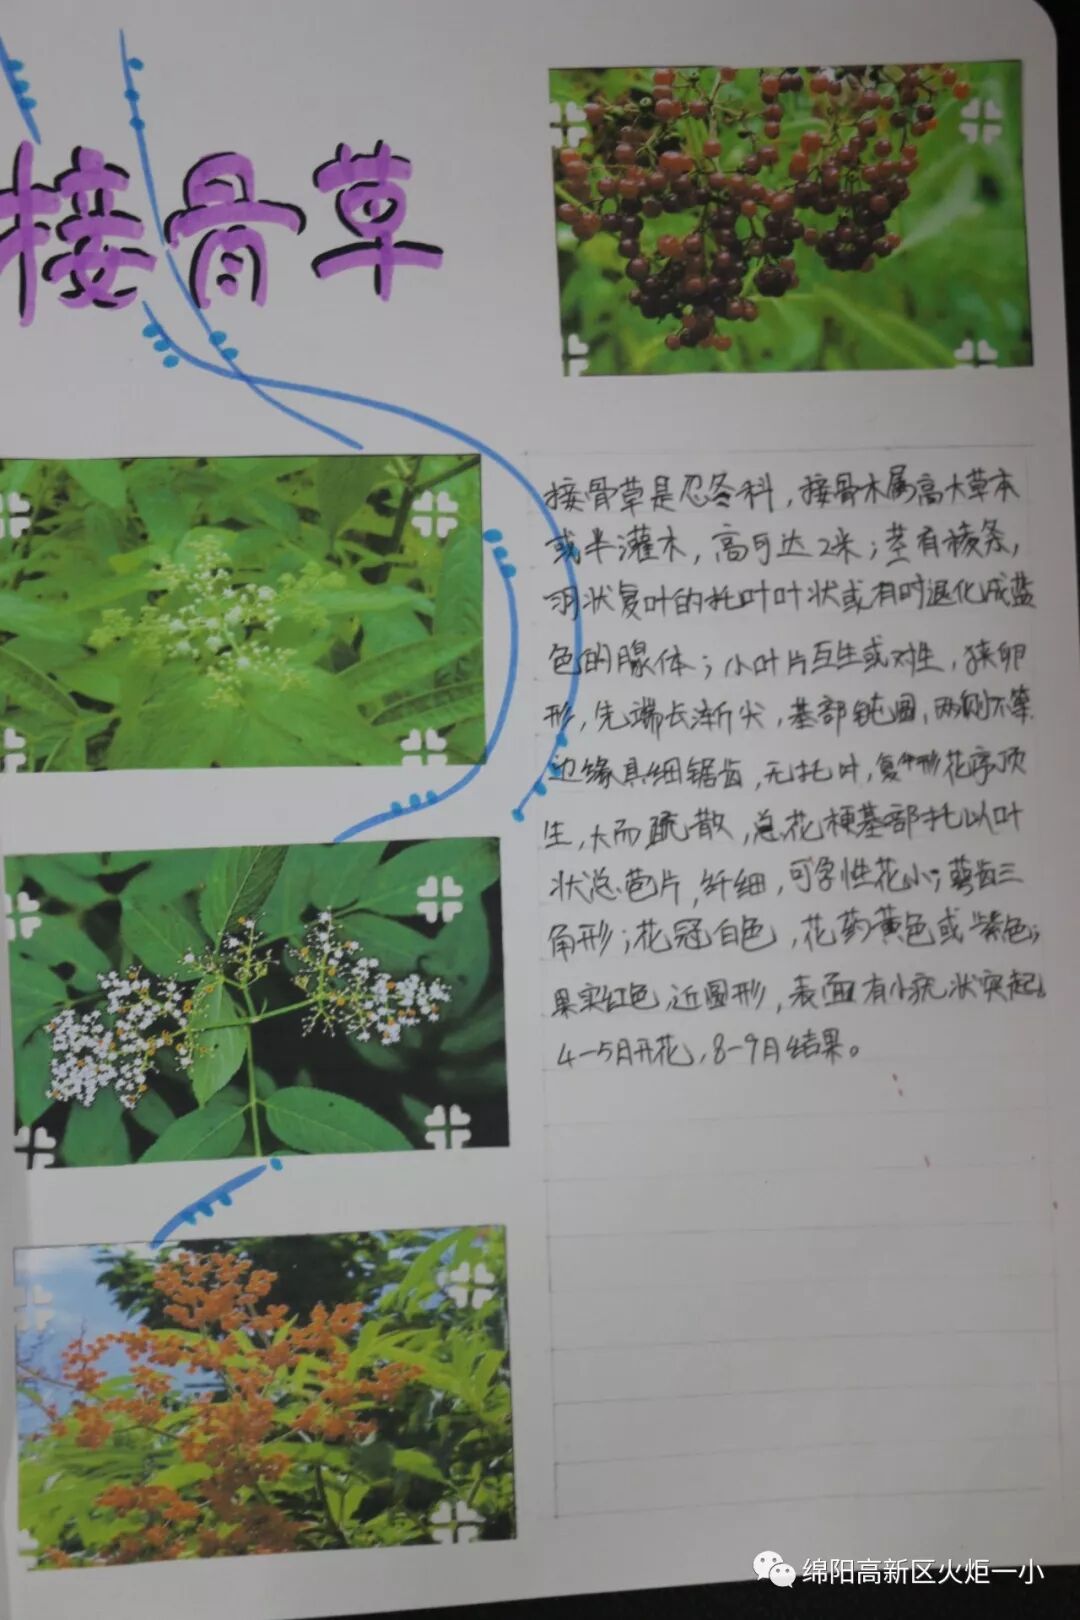 接骨草
接骨草是忍冬科，接骨木属高大草本
或半灌木，高可达2米；茎有棱条，
羽状复叶的托叶叶状或有时退化成蓝
色的腺体；小叶片互生或对生，狭卵
形，先端长渐尖，基部钝圆，两侧不等
边缘具细锯齿，无托叶，复伞形花序顶
生，大而疏散，总花梗基部托以叶
状总苞片，纤细，可孕性花小；萼齿三
角形；花冠白色，花药黄色或紫色；
果实红色，近圆形，表面有小疣状突起。
4-5月开花，8-9月结果。
绵阳高新区火炬一小